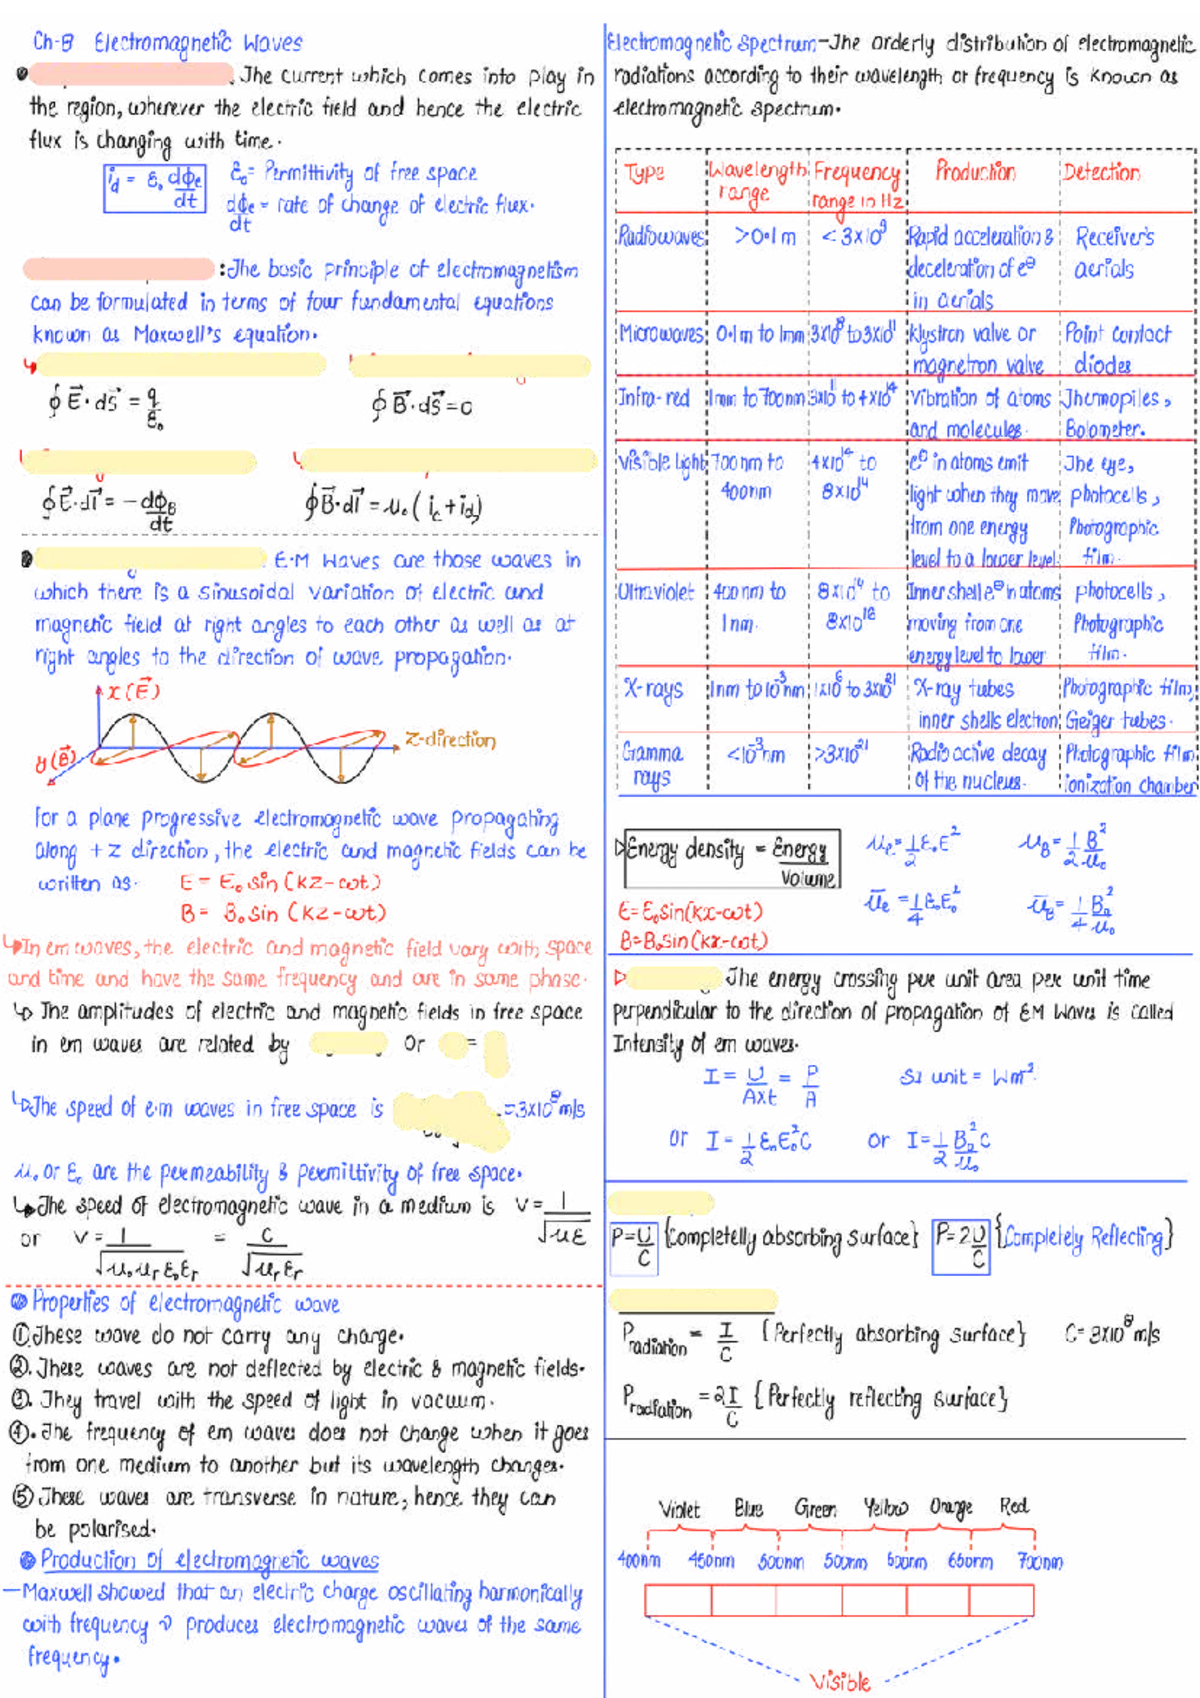 Ch-8 Electromagnetic Waves
. The current which comes into play in
the region, wherever the electric field and hence the electric
flux is changing with time.
i_d = ε₀ dϕ_e/dt
ε₀= Permittivity of free space
dϕ_e/dt = rate of change of electric flux.
:The basic principle of electromagnetism
can be formulated in terms of four fundamental equations
known as Maxwell's equation.
∮E⃗·ds⃗ = q/ε₀
∮B⃗·ds⃗=0
∮E⃗·dl⃗ = -dϕ_B/dt
∮B⃗·dl⃗ = μ₀(i_c+i_d)
E·M Waves are those waves in
which there is a sinusoidal variation of electric and
magnetic field at right angles to each other as well as at
right angles to the direction of wave propagation.
x(E⃗)
y(B⃗)
Z-direction
For a plane progressive electromagnetic wave propagating
along +z direction, the electric and magnetic fields can be
written as. E = E₀ sin(kz-ωt)
B = B₀ sin (kz-ωt)
↳In em waves, the electric and magnetic field vary with space
and time and have the same frequency and are in same phase.
↳ The amplitudes of electric and magnetic fields in free space
in em waves are related by or =
↳The speed of e·m waves in free space is =3x10⁸m/s
μ₀ or ε₀ are the permeability & permittivity of free space.
↳The speed of electromagnetic wave in a medium is v=1/√με
or v=1/√μ₀μᵣε₀εᵣ = c/√μᵣεᵣ
Properties of electromagnetic wave
①These wave do not carry any charge.
②. These waves are not deflected by electric & magnetic fields.
③. They travel with the speed of light in vacuum.
④. The frequency of em waves does not change when it goes
from one medium to another but its wavelength changes.
⑤These waves are transverse in nature, hence they can
be polarised.
Production of electromagnetic waves
-Maxwell showed that an electric charge oscillating harmonically
with frequency ν produces electromagnetic waves of the same
frequency.
Electromagnetic Spectrum-The orderly distribution of electromagnetic
radiations according to their wavelength or frequency is known as
electromagnetic spectrum.
Type Wavelength range Frequency range in Hz Production Detection
Radiowaves >0.1m <3x10⁹ Rapid acceleration & deceleration of e⊖ in aerials Receiver's aerials
Microwaves 0.1m to 1mm 3x10⁹ to 3x10¹¹ Klystron valve or magnetron valve Point contact diodes
Infra-red 1mm to 700nm 3x10¹¹ to 4x10¹⁴ Vibration of atoms and molecules. Thermopiles, Bolometer.
Visible light 700nm to 400nm 4x10¹⁴ to 8x10¹⁴ e⊖ in atoms emit light when they move from one energy level to a lower level. The eye, photocells, Photographic film.
Ultraviolet 400nm to 1nm. 8x10¹⁴ to 8x10¹⁶ Inner shell e⊖ in atoms moving from one energy level to lower photocells, Photographic film.
X-rays 1nm to 10⁻³nm 1x10⁶ to 3x10²¹ X-ray tubes inner shells electron Photographic film, Geiger tubes.
Gamma rays <10⁻³nm >3x10²¹ Radio active decay of the nucleus. Photographic film ionization chamber
▷Energy density = Energy/Volume
μ_e=1/2 ε₀E²
μ_B=1/2 B²/μ₀
μ̄_e =1/4 ε₀E₀²
μ̄_B=1/4 B₀²/μ₀
E=E₀sin(kx-ωt)
B=B₀sin(kx-ωt)
▷ The energy crossing per unit area per unit time
perpendicular to the direction of propagation of EM Waves is called
Intensity of em waves.
I = U/Axt = P/A SI unit = Wm⁻²
or I=1/2 ε₀E₀²C or I=1/2 B₀²/μ₀ C
P=U/C {Completelly absorbing surface} P=2U/C {Completely Reflecting}
P_radiation = I/C {Perfectly absorbing surface} C=3x10⁸m/s
P_radiation =2I/C {Perfectly reflecting surface}
Violet Blue Green Yellow Orange Red
400nm 450nm 500nm 500nm 600nm 650nm 700nm
Visible